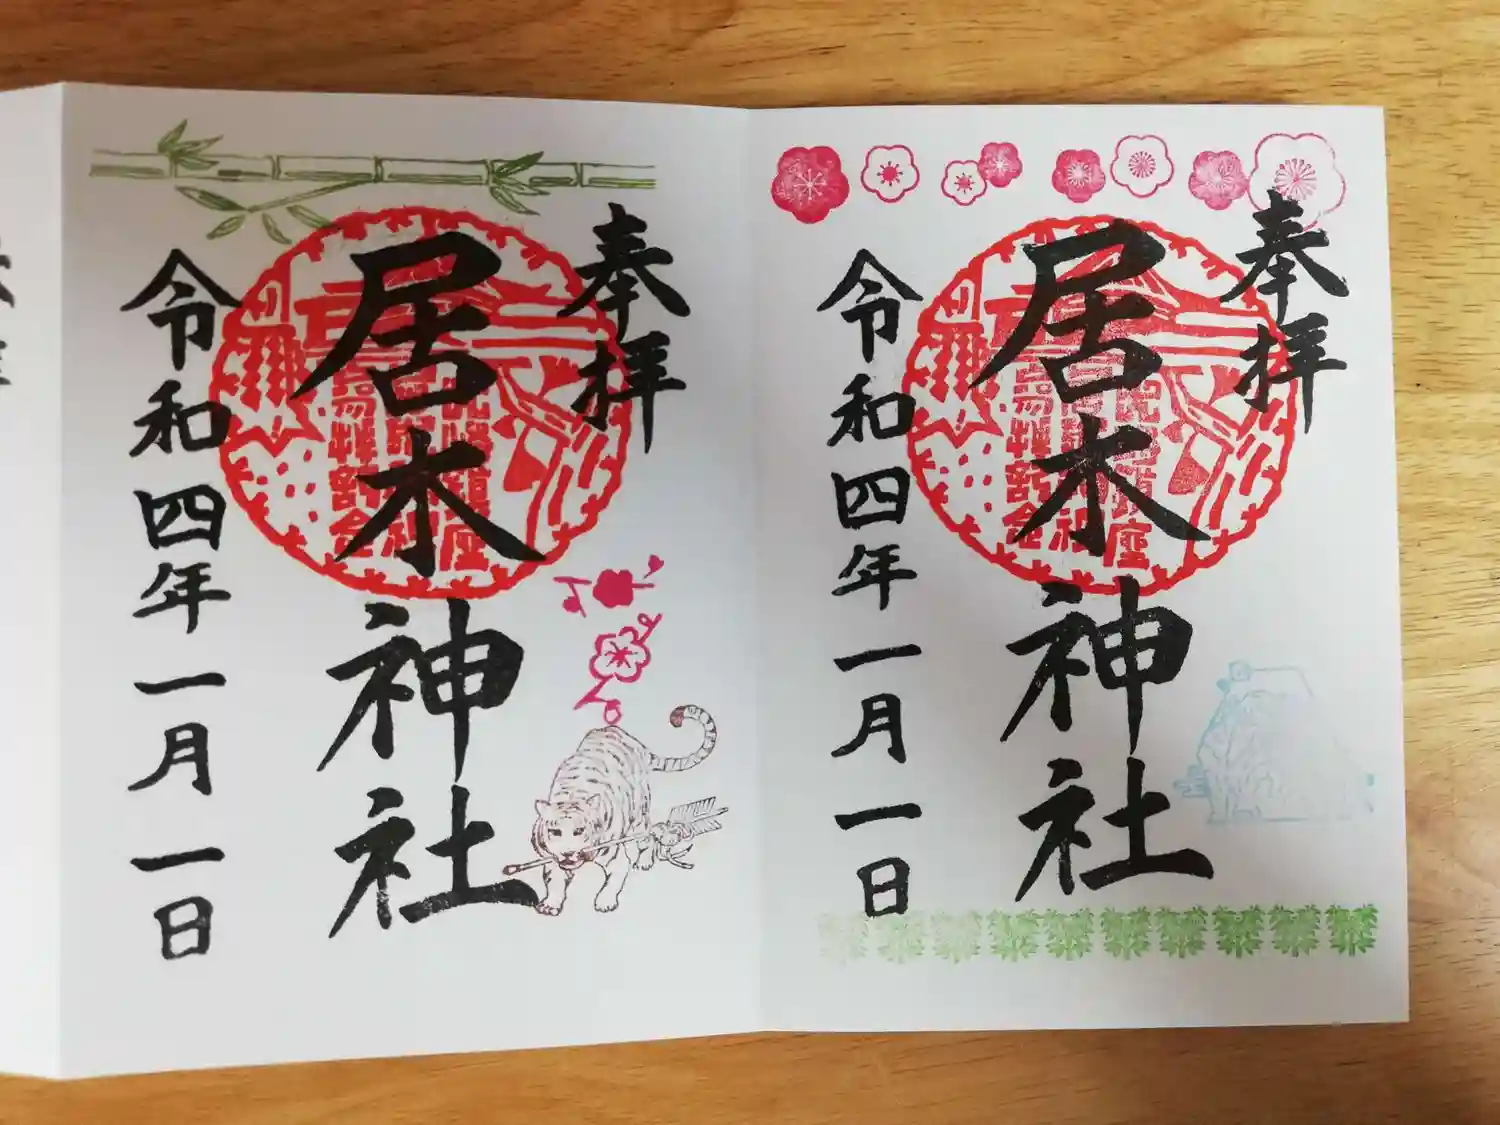 奉拝
居木神社
令和四年一月一日
奉拝
居木神社
令和四年一月一日